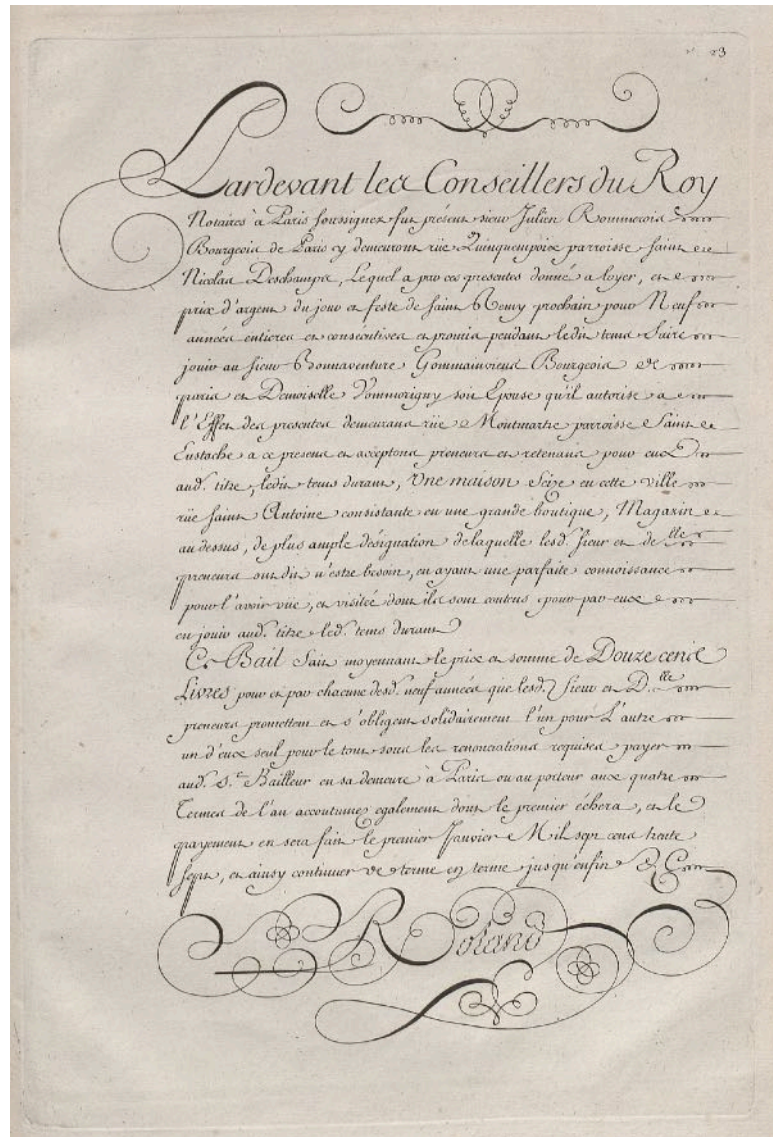 23
Pardevant les Conseillers du Roy
Notaires à Paris soussignez fut présent sieur Julien Rommerois
Bourgeois de Paris y demeurant rüe Quinquempoix parroisse saint
Nicolas Deschamps, Lequel a par ces presentes donné a loyer, et
prix d'argent du jour et feste de saint Remy prochain pour Neuf
années entieres et consécutives et promis pendant ledit tems faire
jouir au sieur Bonnaventure Gommainvieux Bourgeois de
paris et Demoiselle Dommorigny son Epouse qu'il autorise a
l'Effet des presentes demeurans rüe Montmartre parroisse Saint
Eustache a ce present et acceptans preneurs et retenans pour eux
aud. titre, ledit tems durant, Une maison Seize en cette ville
rüe saint Antoine consistante en une grande boutique, Magazin
au dessus, de plus ample désignation de laquelle lesd. sieur et de.lle
preneurs ont dit n'estre besoin, en ayant une parfaite connoissance
pour l'avoir vüe, et visitée dont ils sont contens pour par eux
en jouir aud. titre led. tems durant
Ce Bail Fait moyennant le prix et somme de Douze cents
Livres pour et par chacune desd. neuf années que lesd. Sieur et D.lle
preneurs promettent et s'obligent solidairement l'un pour L'autre
un d'eux seul pour le tout sous les renonciations requises payer
aud. S.r Bailleur en sa demeure à Paris ou au porteur aux quatre
Termes de l'an accoutumez egalement dont le premier échera, et le
payement en sera fait le premier Janvier Mil sept cens trente
sept, et ainsy continuer de terme en terme jusqu'enfin &c
Roland